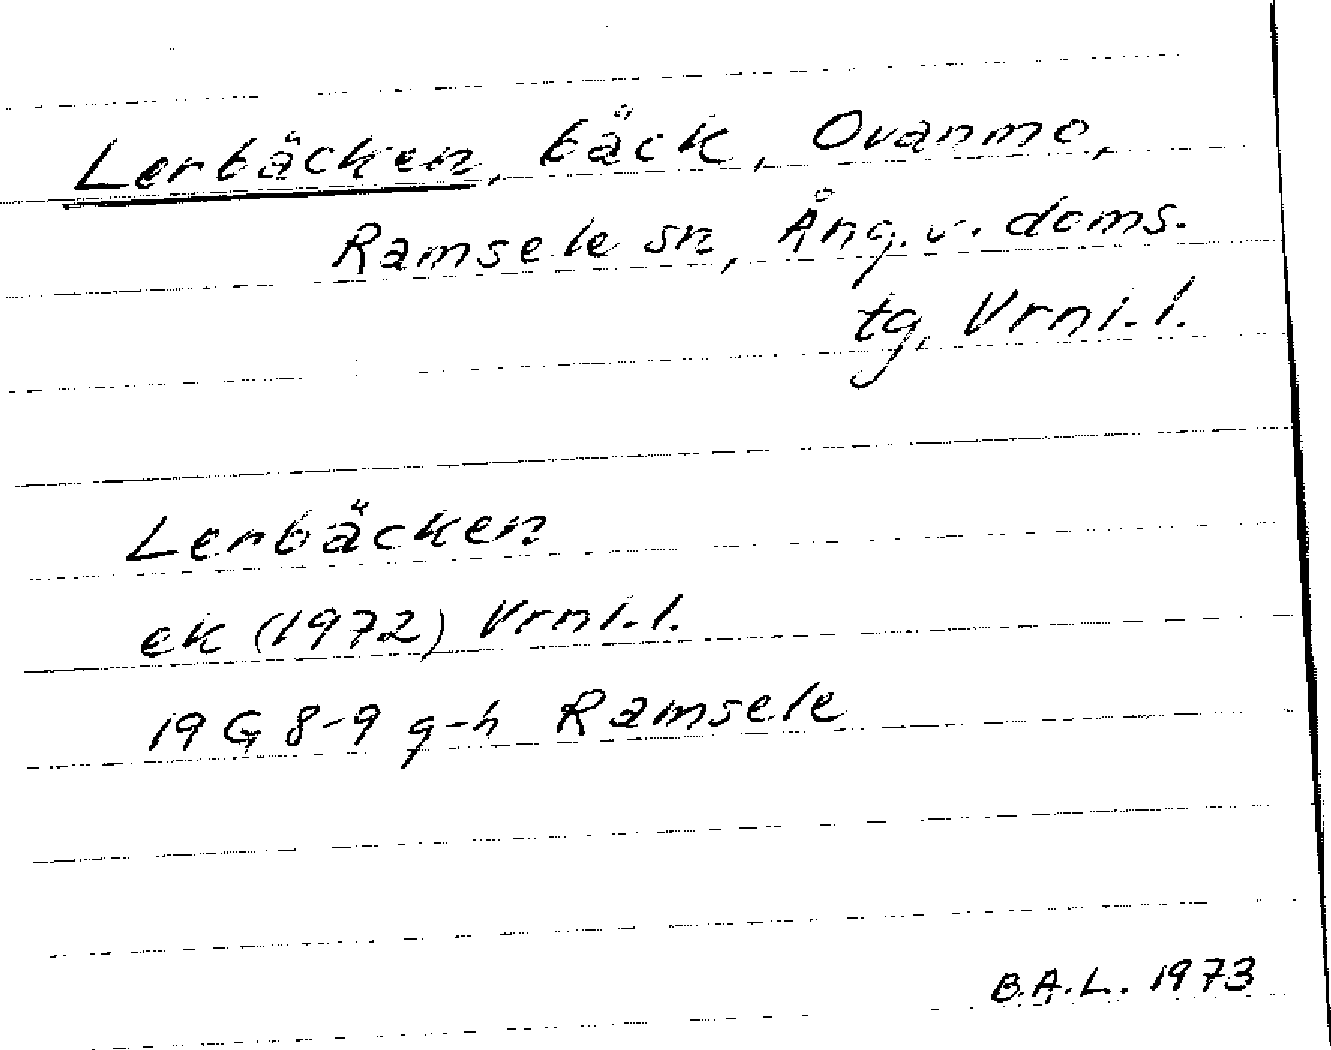 Lerbäcken, bäck, Ovanmo,
Ramsele sn, Ång. v. doms.
tg, Vrnl. l.
Lerbäcken
ek (1972) Vrnl. l.
19 G 8-9 g-h Ramsele
B.A.L. 1973